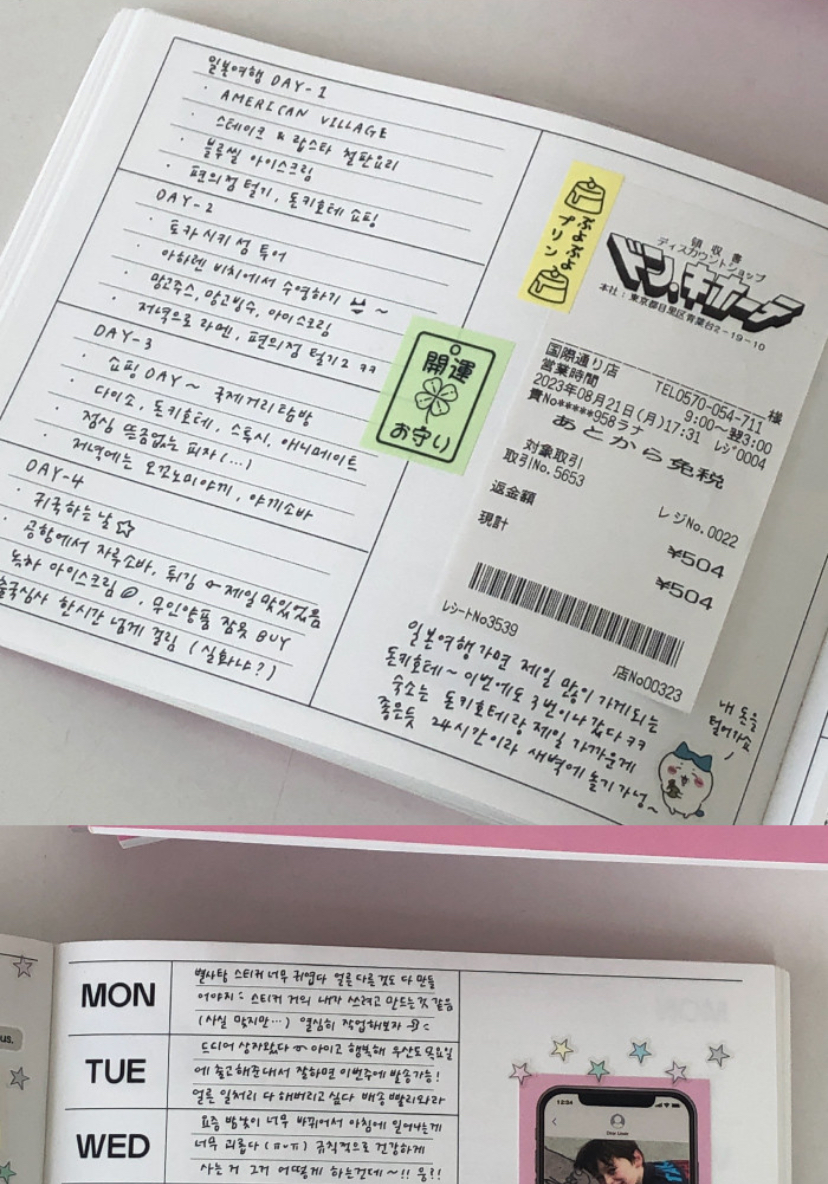 일본여행 DAY-1
· AMERICAN VILLAGE
· 스테이크 & 랍스타 철판요리
· 블루씰 아이스크림
· 편의점 털기, 돈키호테 쇼핑
DAY-2
· 토카시키섬 투어
· 아하렌 비치에서 수영하기 ~
· 망고주스, 망고빙수, 아이스크림
· 저녁으로 라멘, 편의점 털기2 ㅋㅋ
DAY-3
· 쇼핑 DAY~ 국제거리탐방
· 다이소, 돈키호테, 스투시, 애니메이트
· 점심 뜬금없는 피자(...)
· 저녁에는 오꼬노미야끼, 야끼소바
DAY-4
· 귀국하는 날☆
· 공항에서 자루소바, 튀김 제일 맛있었음
녹차 아이스크림, 무인양품 잠옷 BUY
출국심사 한시간 넘게 걸림 (실화냐?)
ぷよぷよ
プリン
開運
お守り
領収書
ディスカウントショップ
ドン.キホーテ
本社:東京都目黒区青葉台2-19-10
国際通り店 TEL0570-054-711
営業時間 9:00~翌3:00
2023年08月21日(月)17:31 レジ*0004
責No*****958ラナ 様
あとから免税
対象取引 レジNo.0022
取引No.5653
返金額 ¥504
現計 ¥504
レシートNo3539 店No00323
일본여행 가면 제일 많이 가게되는
돈키호테~ 이번에도 3번이나 갔다 ㅋㅋ
숙소는 돈키호테랑 제일 가까운게
좋은듯 24시간이라 새벽에 놀기 가넝~
내 돈을
털어가요
MON
별사탕 스티커 너무 귀엽다 얼른 다른 것도 다 만들
어야지: 스티커 거의 내가 쓰려고 만드는 것 같음
(사실 맞지만…) 열심히 작업해보자
TUE
드디어 상자왔다 아이고 행복해 우산도 목요일
에 출고해준대서 잘하면 이번주에 발송가능!
얼른 일처리 다 해버리고 싶다 배송 빨리와라
WED
요즘 밤낮이 너무 바뀌어서 아침에 일어나는게
너무 괴롭다 (ㅠㅠ) 규칙적으로 건강하게
사는 거 그거 어떻게 하는건데~!! 응?!
us.
12:34